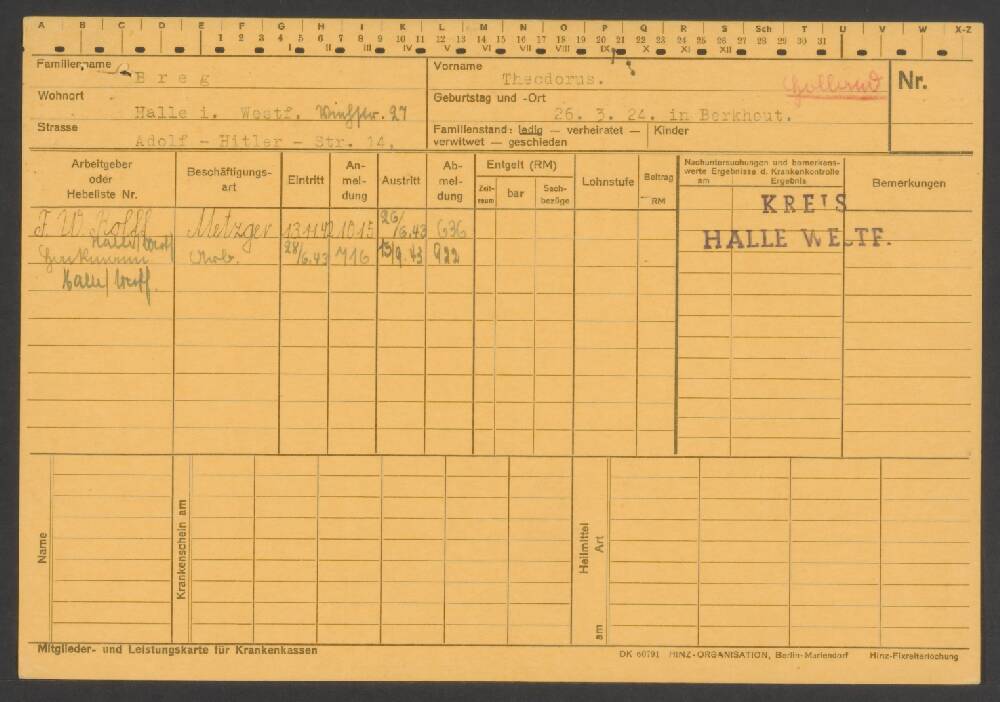 A B C D E F G H I K L M N O P Q R S Sch T U V W X-Z
1 2 3 4 5 6 7 8 9 10 11 12 13 14 15 16 17 18 19 20 21 22 23 24 25 26 27 28 29 30 31
I II III IV V VI VII VIII IX X XI XII
Familienname Breg
Vorname Theodorus.
Holland
Nr.
Wohnort Halle i. Westf. 27
Geburtstag und -Ort 26. 3. 24. in Berkhout.
Strasse Adolf - Hitler - Str. 14.
Familienstand: ledig — verheiratet — Kinder
verwitwet — geschieden
Arbeitgeber oder Hebeliste Nr.
Beschäftigungs-art
Eintritt
An-mel-dung
Austritt
Ab-mel-dung
Entgelt (RM)
Zeit-raum
bar
Sach-bezüge
Lohnstufe
Beitrag
RM
Nachuntersuchungen und bemerkens-
werte Ergebnisse d. Krankenkontrolle
am Ergebnis
Bemerkungen
KREIS
HALLE WESTF.
F. W. Rolff Metzger 13.11.42 1015 26/6.43 636
Halle/Westf
Arb. 28/6.43 716 13/9.43 922
Halle/Westf.
Name
Krankenschein am
Heilmittel
Art
am
Mitglieder- und Leistungskarte für Krankenkassen
DK 60791 HINZ-ORGANISATION, Berlin-Mariendorf Hinz-Fixreiterlochung